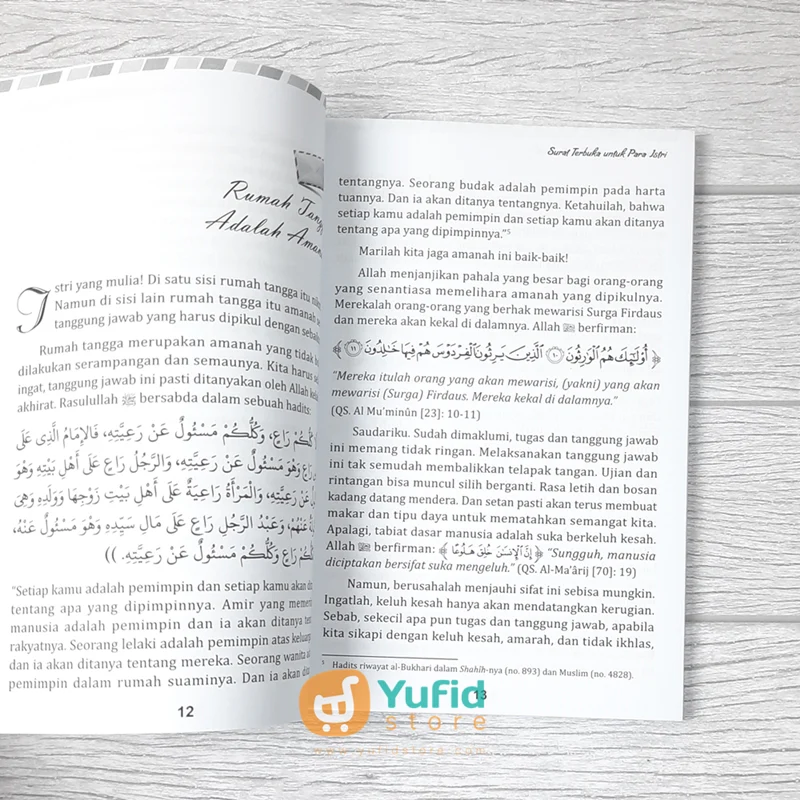 Rumah
Adalah
Istri yang mulia! Di satu sisi rumah tangga itu
Namun di sisi lain rumah tangga itu amanah
tanggung jawab yang harus dipikul dengan
Rumah tangga merupakan amanah yang tidak
dilakukan serampangan dan semaunya. Kita harus
ingat, tanggung jawab ini pasti ditanyakan oleh Allah
akhirat. Rasulullah ﷺ bersabda dalam sebuah hadits:
رَاعٍ، وَكُلُّكُمْ مَسْئُولٌ عَنْ رَعِيَّتِهِ، فَالإِمَامُ الَّذِي عَلَى
رَاعٍ وَهُوَ مَسْئُولٌ عَنْ رَعِيَّتِهِ، وَالرَّجُلُ رَاعٍ عَلَى أَهْلِ بَيْتِهِ وَهُوَ
عَنْ رَعِيَّتِهِ، وَالْمَرْأَةُ رَاعِيَةٌ عَلَى أَهْلِ بَيْتِ زَوْجِهَا وَوَلَدِهِ وَهِيَ
عَنْهُمْ، وَعَبْدُ الرَّجُلِ رَاعٍ عَلَى مَالِ سَيِّدِهِ وَهُوَ مَسْئُولٌ عَنْهُ،
رَاعٍ وَكُلُّكُمْ مَسْئُولٌ عَنْ رَعِيَّتِهِ. ))
"Setiap kamu adalah pemimpin dan setiap kamu akan
tentang apa yang dipimpinnya. Amir yang
manusia adalah pemimpin dan ia akan ditanya
rakyatnya. Seorang lelaki adalah pemimpin atas
dan ia akan ditanya tentang mereka. Seorang wanita
pemimpin dalam rumah suaminya. Dan ia akan
12
Surat Terbuka untuk Para Istri
tentangnya. Seorang budak adalah pemimpin pada harta
tuannya. Dan ia akan ditanya tentangnya. Ketahuilah, bahwa
setiap kamu adalah pemimpin dan setiap kamu akan ditanya
tentang apa yang dipimpinnya."5
Marilah kita jaga amanah ini baik-baik!
Allah menjanjikan pahala yang besar bagi orang-orang
yang senantiasa memelihara amanah yang dipikulnya.
Merekalah orang-orang yang berhak mewarisi Surga Firdaus
dan mereka akan kekal di dalamnya. Allah ﷻ berfirman:
﴿ أُوْلَٰٓئِكَ هُمُ ٱلْوَٰرِثُونَ ١٠ ٱلَّذِينَ يَرِثُونَ ٱلْفِرْدَوْسَ هُمْ فِيهَا خَٰلِدُونَ ١١ ﴾
"Mereka itulah orang yang akan mewarisi, (yakni) yang akan
mewarisi (Surga) Firdaus. Mereka kekal di dalamnya."
(QS. Al Mu'minûn [23]: 10-11)
Saudariku. Sudah dimaklumi, tugas dan tanggung jawab
ini memang tidak ringan. Melaksanakan tanggung jawab
ini tak semudah membalikkan telapak tangan. Ujian dan
rintangan bisa muncul silih berganti. Rasa letih dan bosan
kadang datang mendera. Dan setan pasti akan terus membuat
makar dan tipu daya untuk mematahkan semangat kita.
Apalagi, tabiat dasar manusia adalah suka berkeluh kesah.
Allah ﷻ berfirman: ﴿ إِنَّ ٱلْإِنسَٰنَ خُلِقَ هَلُوعًا ﴾ "Sungguh, manusia
diciptakan bersifat suka mengeluh." (QS. Al-Ma'ârij [70]: 19)
Namun, berusahalah menjauhi sifat ini sebisa mungkin.
Ingatlah, keluh kesah hanya akan mendatangkan kerugian.
Sebab, sekecil apa pun tugas dan tanggung jawab, apabila
kita sikapi dengan keluh kesah, amarah, dan tidak ikhlas,
5 Hadits riwayat al-Bukhari dalam Shahih-nya (no. 893) dan Muslim (no. 4828).
13
Yufid
store
www.yufidstore.com